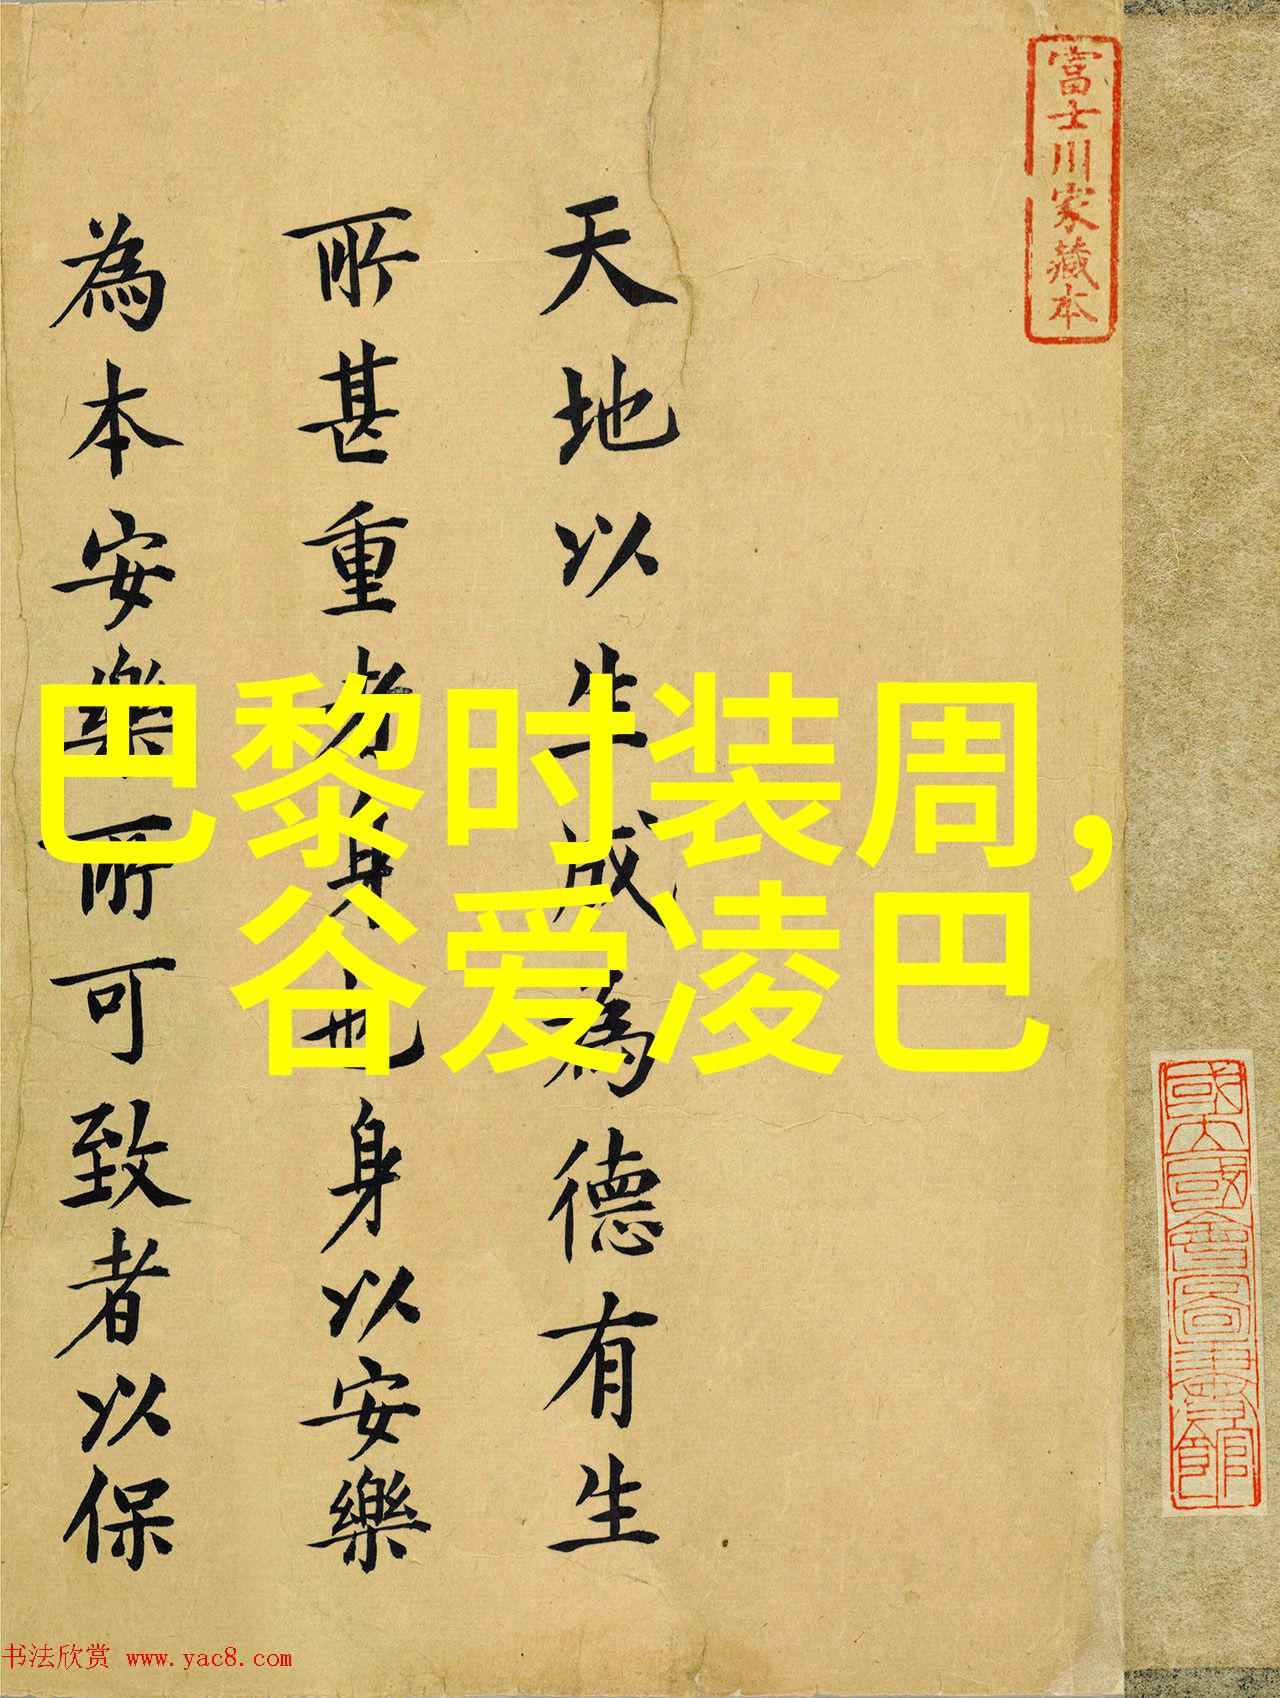 富士川家藏本
天地以生成為德有生
所甚重者身也身以安樂
為本安樂所可致者以保
巴黎时装周，
谷爱凌巴
书法欣赏 www.yac8.com